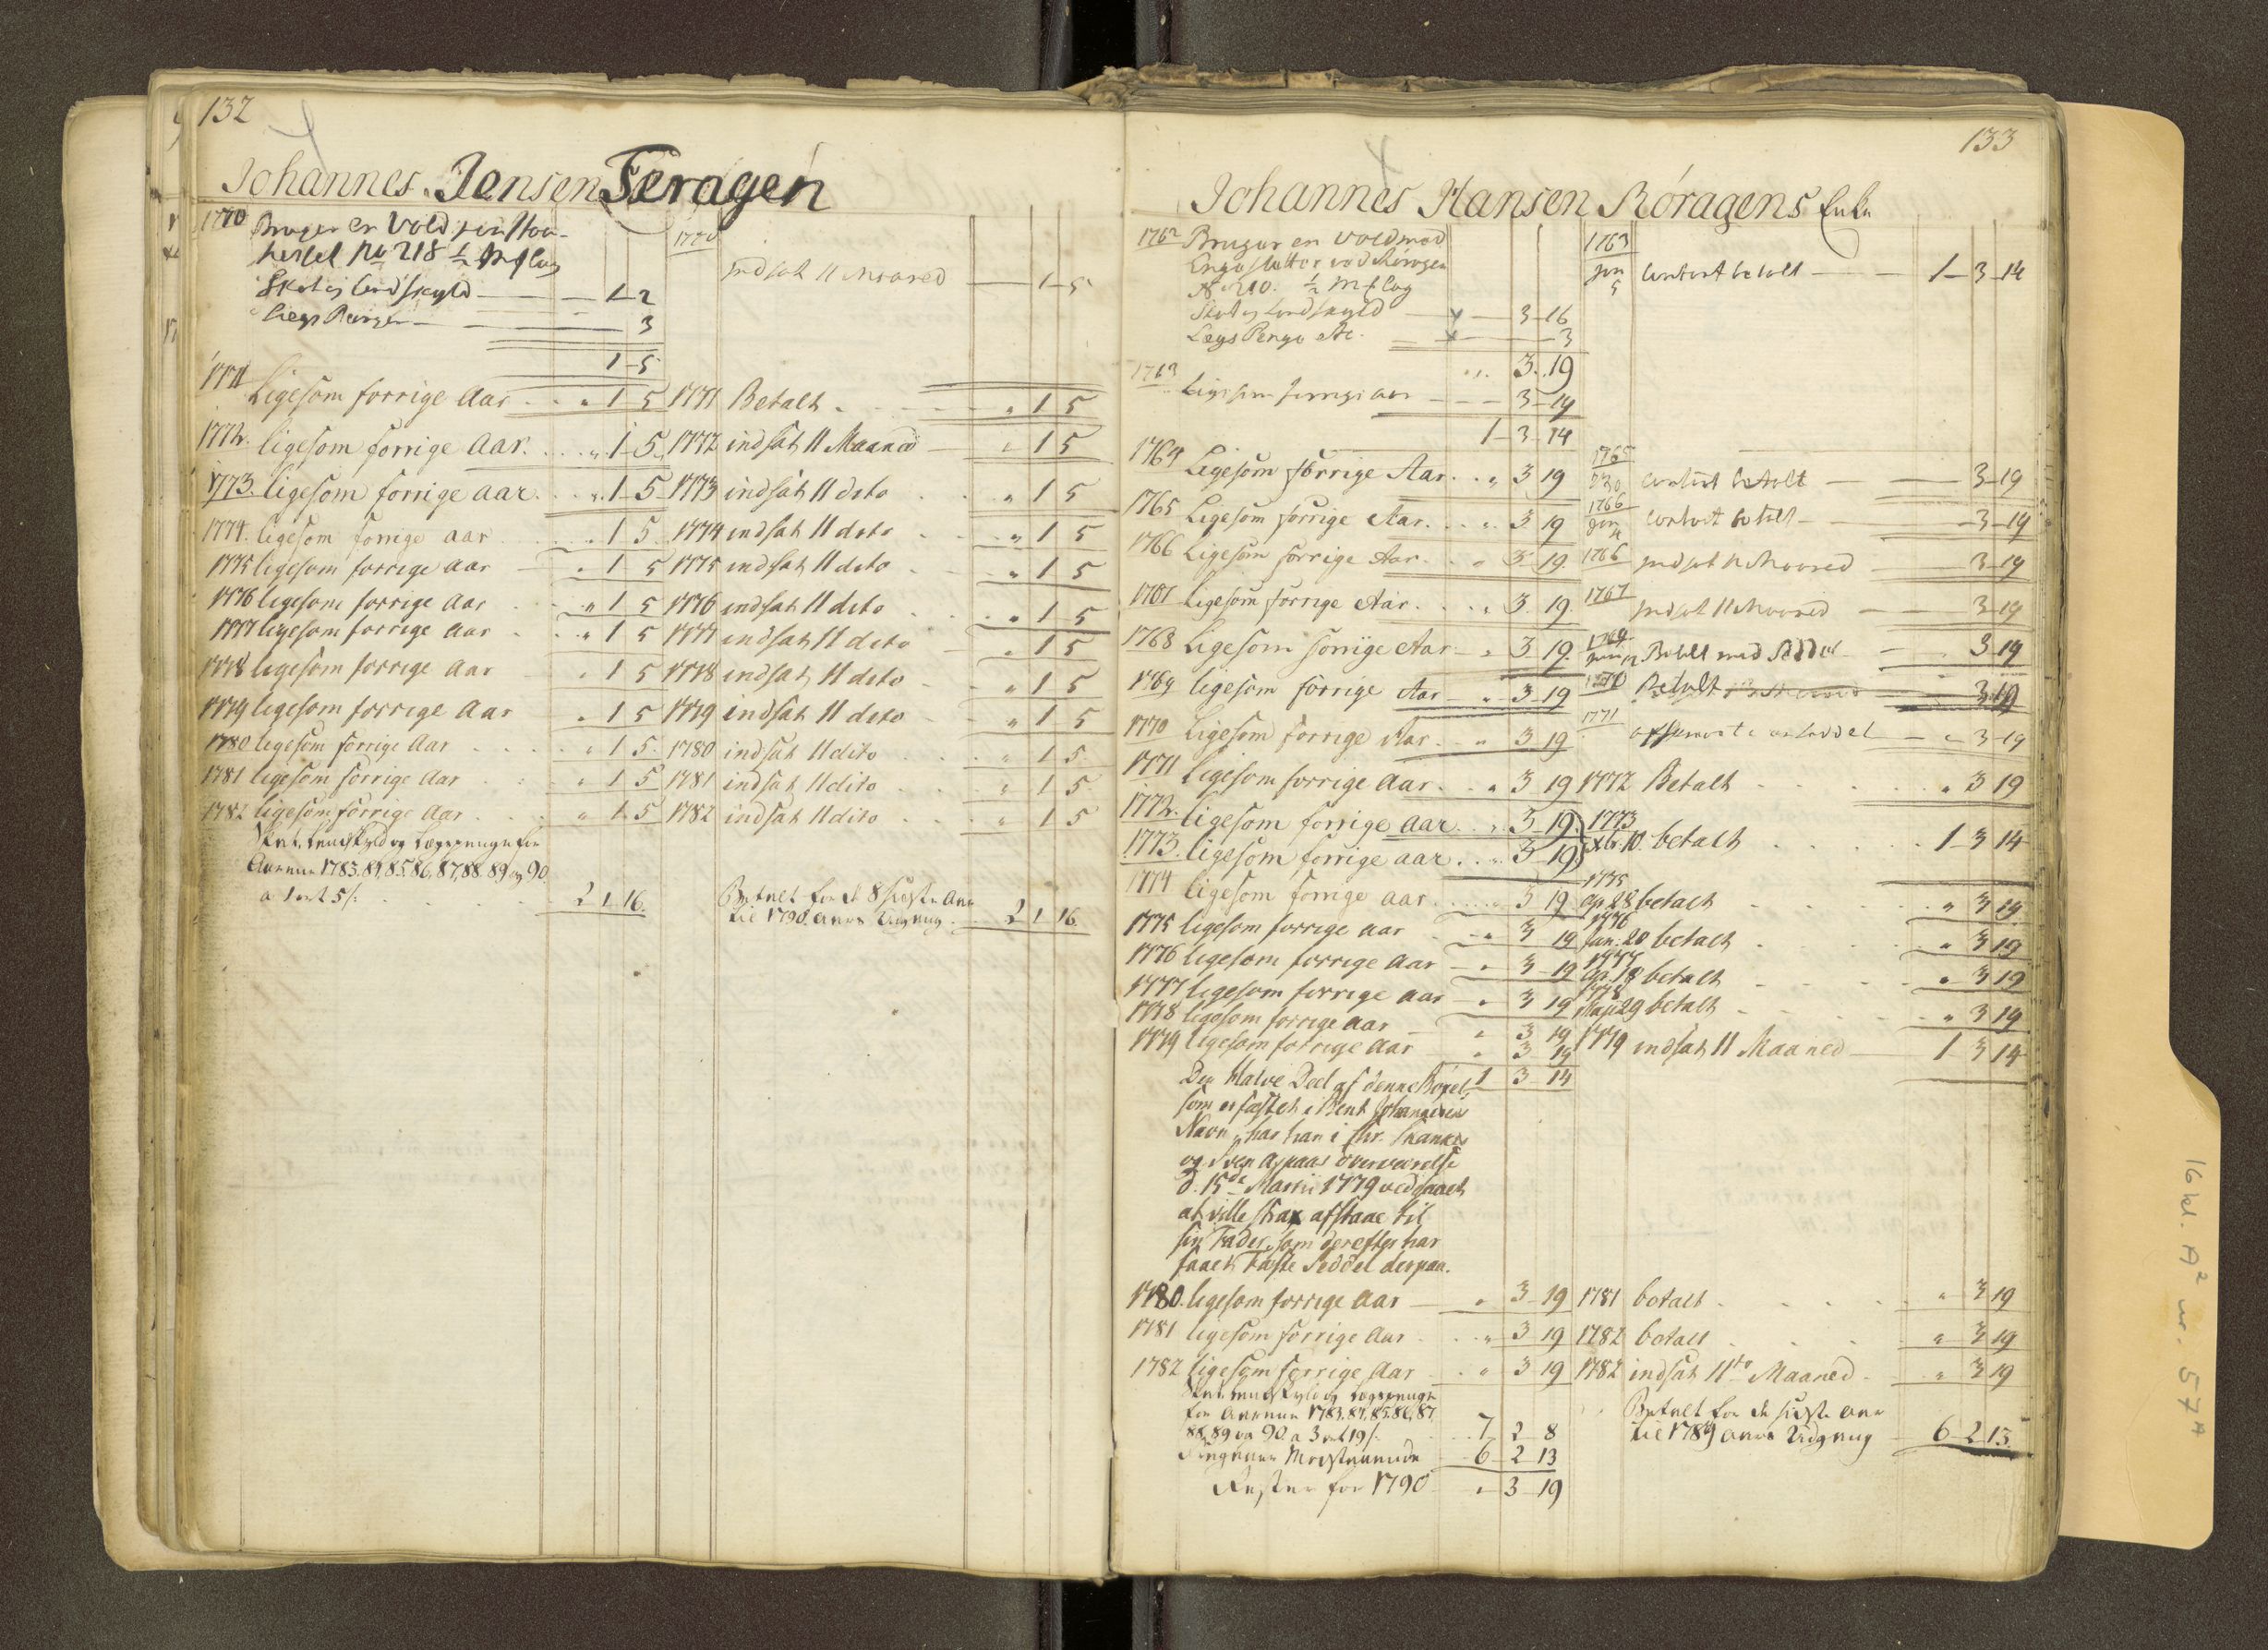 132
Johannes Jensen Feragen
1770 Bruger en Vold
No 218 ½ Mslag
Skat og Landskyld — 1 2
Lægs Penger — 3
1 5
1770 indsat 11 Maaned — 1 5
1771 Ligesom forrige Aar . . " 1 5 1771 Betalt . " 1 5
1772. ligesom forrige Aar. . . " 1 5 1772 indsat 11 Maaned — " 1 5
1773. ligesom forrige aar. . . " 1 5 1773 indsat 11 dito . . " 1 5
1774. ligesom forrige aar . . " 1 5 1774 indsat 11 dito . . " 1 5
1775 ligesom forrige aar — " 1 5 1775 indsat 11 dito . . " 1 5
1776 ligesom forrige Aar . . " 1 5 1776 indsat 11 dito . . " 1 5
1777 ligesom forrige Aar . . " 1 5 1777 indsat 11 dito . . " 1 5
1778 ligesom forrige Aar — " 1 5 1778 indsat 11 dito . . " 1 5
1779 ligesom forrige Aar — " 1 5 1779 indsat 11 dito — " 1 5
1780 ligesom forrige Aar . . . " 1 5. 1780 indsat 11 dito . . . " 1 5.
1781 ligesom forrige Aar . . " 1 5 1781 indsat 11 dito . . . " 1 5
1782 ligesom forrige Aar . . . " 1 5 1782 indsat 11 dito . . . " 1 5
Skat Landskyld og Lægspenge for
Aarene 1783. 84. 85. 86. 87. 88. 89 og 90.
a 1 ort 5 s. . . . 2 1 16. Betalt for de 8 sidste Aar
til 1790. Aars Udgang . . 2 1 16.
133
Johannes Hansen Röragens Enke
1762 Bruger en Vold med
Enge Sletter ved Röragen
No 210. ½ Mslag
Skat og Landskyld — 3 16
Lægs Penge etc. — 3
3. 19
1763 Jan 5 Contant betalt — 1 3 14
1763 Ligesom forrige Aar — 3 19
1 3 14
1764 Ligesom forrige Aar. . " 3 19 1765 Contant betalt — 3 19
1765 Ligesom forrige Aar. . . " 3 19 1766 Jan Contant betalt — 3 19
1766 Ligesom forrige Aar . . " 3 19. 1766 indsat 11 Maaned — 3 19
1767 Ligesom forrige Aar. . . . " 3. 19. 1767 indsat 11 Maaned — 3 19
1768 Ligesom forrige Aar — " 3 19. 1769 Betalt med Seddel — 3 19
1769 ligesom forrige Aar — " 3 19 1770 Betalt 3 19
1770 Ligesom forrige Aar. . " 3 19. 1771 — " 3 19
1771 ligesom forrige Aar. . . " 3 19 1772 Betalt . . . " 3 19
1772. ligesom forrige aar. . " 3 19. 1773
1773. ligesom forrige aar. . " 3 19 xbr. 10. betalt . . . . 1 3 14
1774 ligesom forrige aar . . . . " 3 19. 1775 Ap 28 betalt . . . " 3 19
1775 ligesom forrige aar . . " 3 19 1776 Jan. 20 betalt . . . " 3 19
1776 ligesom forrige Aar — " 3 19 1777 Ap. 18 betalt . . . " 3 19
1777 ligesom forrige Aar — " 3 19 1778 Maji 29 betalt . . . " 3 19
1778 ligesom forrige Aar — " 3 19
1779 ligesom forrige Aar — " 3 19 1779 indsat 11 Maaned — 1 3 14
1 3 14
Den Halve Deel af denne Böxel,
som er fæstet i Bent Johannesen
Navn, har han i Hr. Skankes
og Sven Aspaas Overværelse
d. 15de Martii 1779 vedgaaet
at ville strax afstaae til
sin Fader, som derefter har
faaet Fæste Seddel derpaa.
1780. ligesom forrige Aar — " 3 19 1781 betalt . . . . " 3 19
1781 ligesom forrige Aar . . . " 3 19 1782 betalt . . . " 3 19
1782 ligesom forrige Aar . . " 3 19 1782 indsat 11te Maaned . . " 3 19
Skat Landskyld og Lægspenge
for Aarene 1783. 84. 85. 86. 87
88. 89 og 90. a 3 ort 19 s. . . 7 2 8
Betalt for de sidste Aar
til 1789 Aars Udgang 6 2 13.
6 2 13
Rester for 1790 . " 3 19
16 kl. A² nr. 57 A